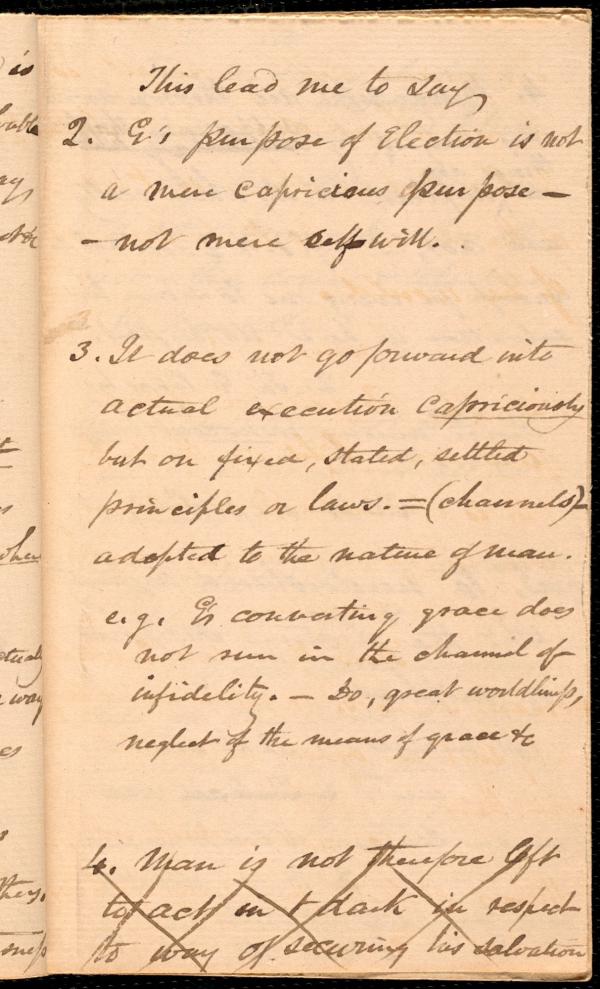 is
This lead me to say,
2. G's purpose of Election is not
a mere capricious purpose –
– not mere self will.
3. It does not go forward into
actual execution capriciously
but on fixed, stated, settled
principles or laws. = (channels) –
adapted to the nature of man.
e.g. G's converting grace does
not run in the channel of
infidelity. – Do, great worldliness,
neglect of the means of grace &c
4. Man is not therefore left
to act in t dark in respect
to way of securing his salvation